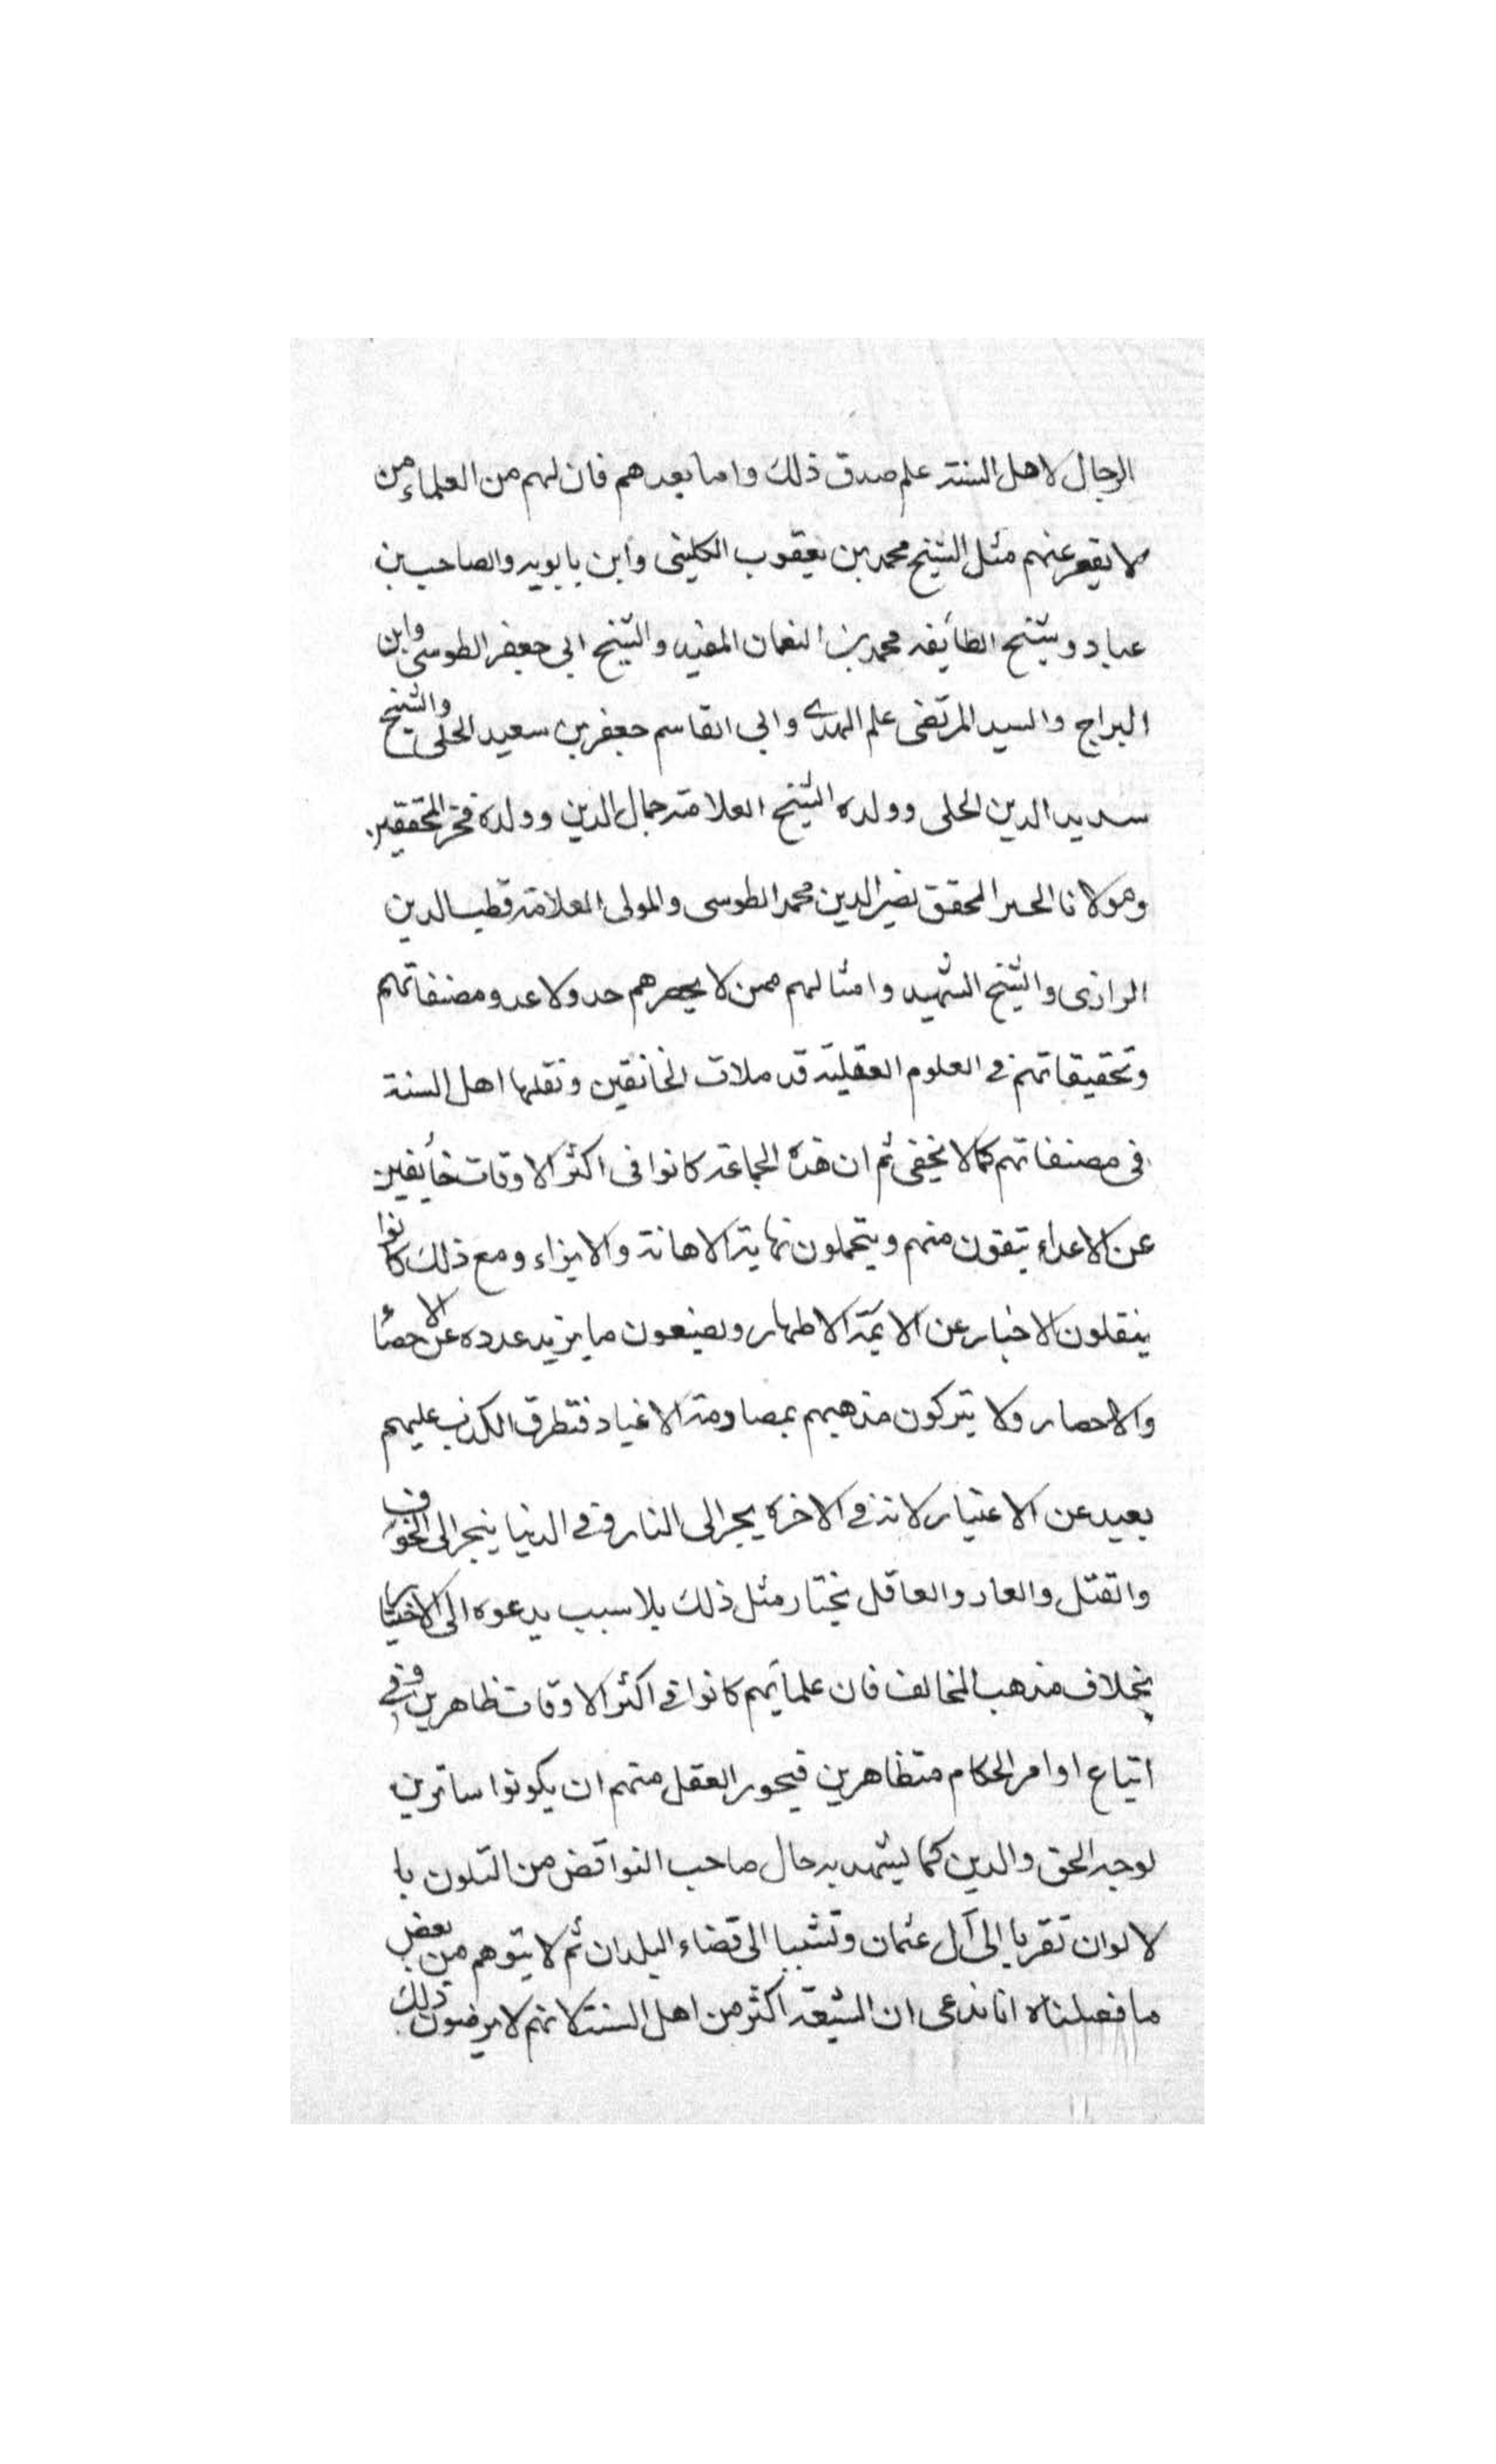 الرجال لاهل السنة علم صدق ذلك واما بعدهم فان لهم من العلماء من
لا يقصر عنهم مثل الشيخ محمد بن يعقوب الكليني وابن بابويه والصاحب بن
عباد وشيخ الطائفه محمد بن النعمان المفيد والشيخ ابي جعفر الطوسي وابن
البراج والسيد المرتضى علم الهدى وابي القاسم جعفر بن سعيد الحلى والشيخ
سديد الدين الحلى وولده الشيخ العلامة جمال الدين وولده فخر المحققين
ومولانا الحبر المحقق نصير الدين محمد الطوسى والمولى العلامة قطب الدين
الرازى والشيخ الشهيد وامثالهم ممن لا يحصرهم حد ولا عد ومصنفاتهم
وتحقيقاتهم في العلوم العقلية قد ملات الخافقين ونقلها اهل السنة
في مصنفاتهم كما لا يخفى ثم ان هذه الجماعة كانوا فى اكثر الاوقات خائفين
عن الاعداء يتقون منهم ويتحملون نهاية الاهانة والايذاء ومع ذلك كانوا
ينقلون الاخبار عن الائمة الاطهار ويصنعون ما يزيد عدده عن الاحصاء
والاحصار ولا يتركون مذهبهم بمصادمة الاغيار فتطرق الكذب عليهم
بعيد عن الاعتبار لانه في الاخرة يجر الى النار وفي الدنيا ينجر الى الخوف
والقتل والعار والعاقل يختار مثل ذلك بلا سبب يدعوه الى الاختيار
بخلاف مذهب المخالف فان علمائهم كانوا في اكثر الاوقات ظاهرين وفي
اتباع اوامر الحكام متظاهرين فيجوز العقل منهم ان يكونوا ساترين
لوجه الحق والدين كما يشهد به حال صاحب النواقض من التلون با
لالوان تقربا الى آل عثمان وتشببا الى قضاء البلدان ثم لا يتوهم من بعض
ما فصلناه انا ندعى ان الشيعة اكثر من اهل السنة لانهم لا يرضون ذلك